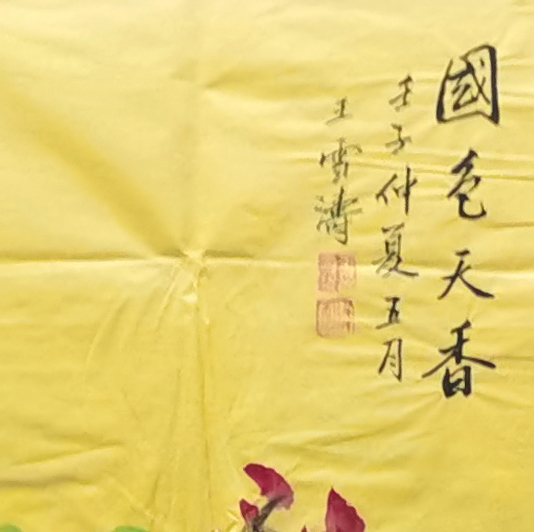 國色天香
壬子仲夏五月
王雪濤